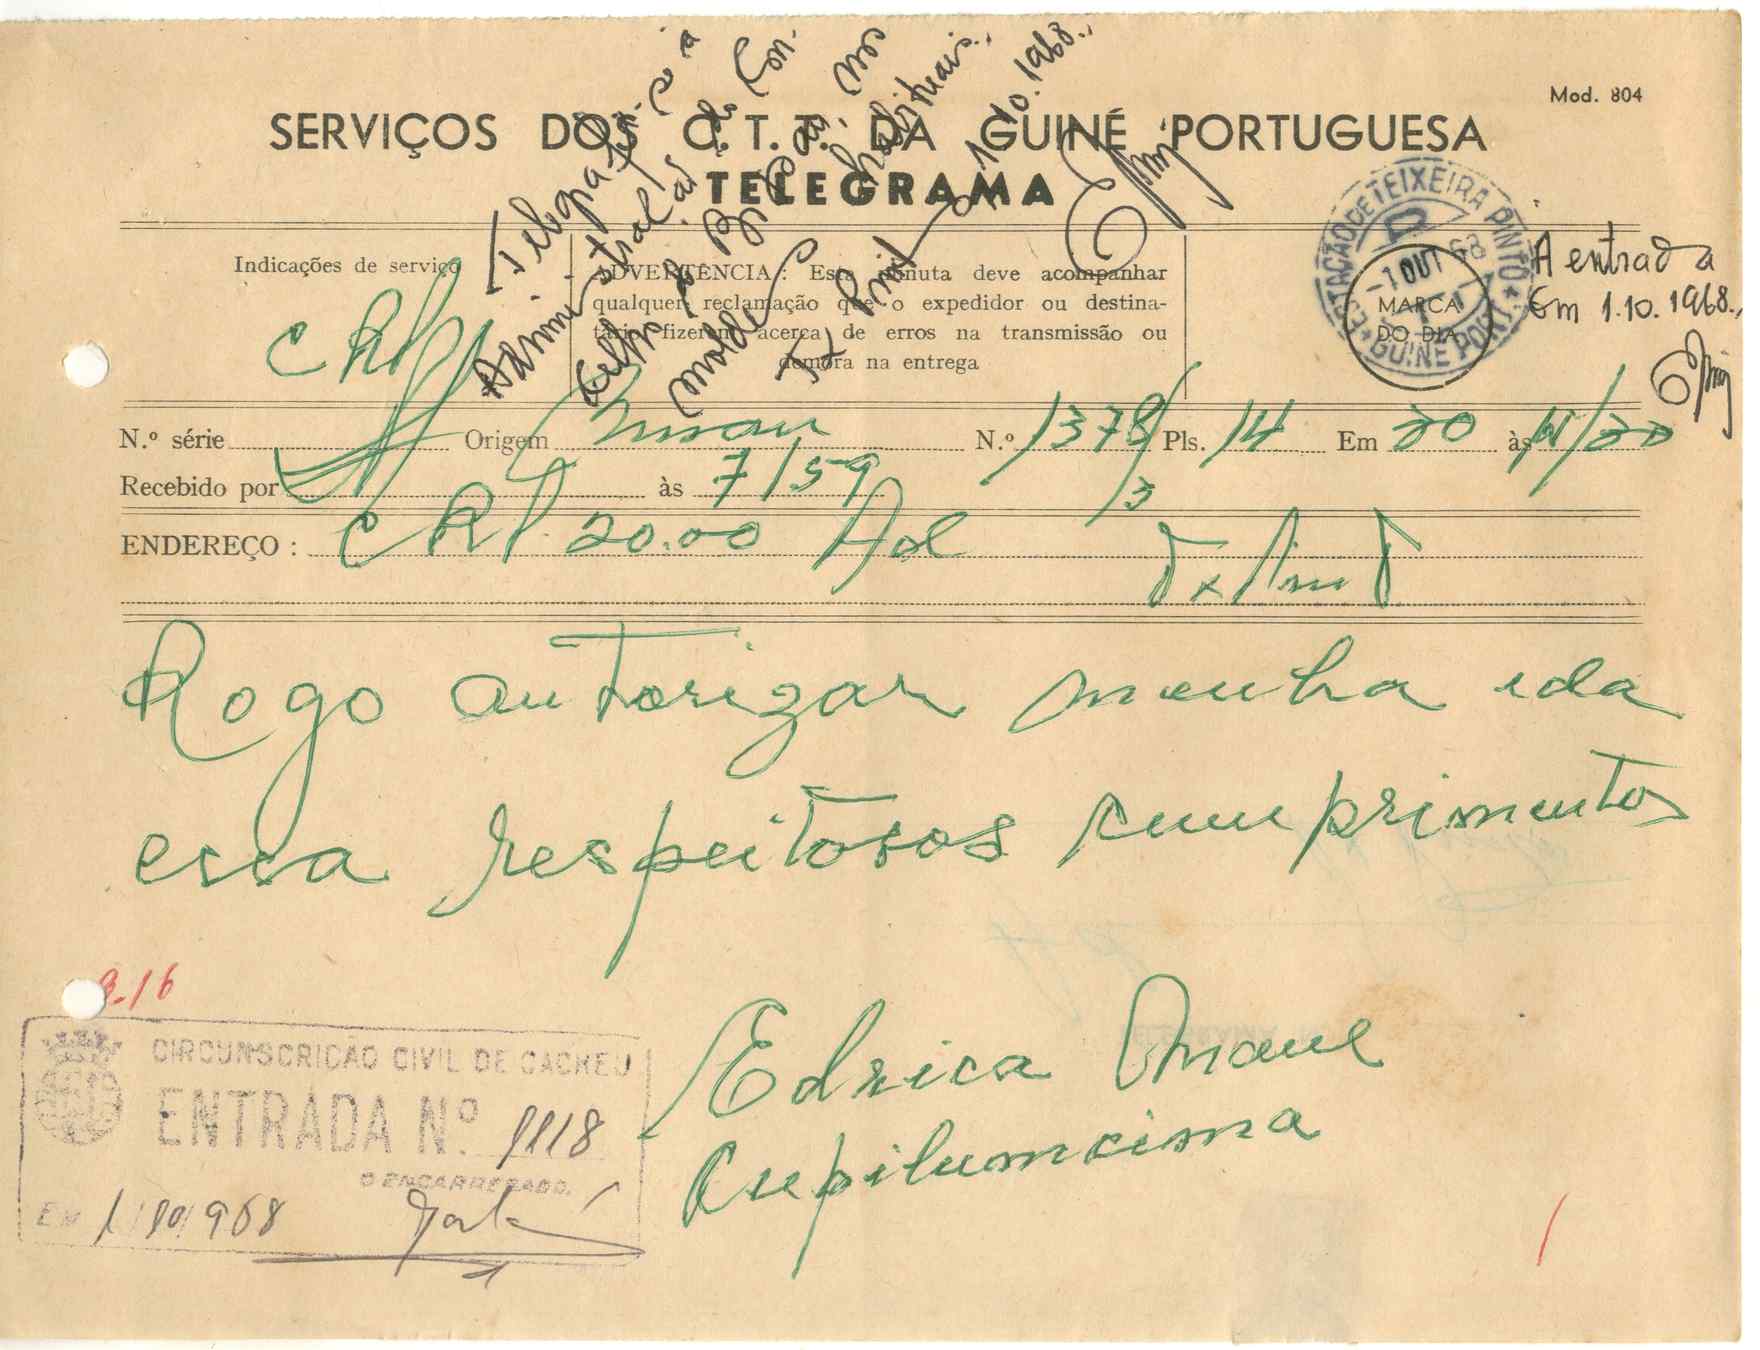 Mod. 804
SERVIÇOS DOS C. T. T. DA GUINÉ PORTUGUESA
TELEGRAMA
Telegrafe-se à
Administração do Con-
celho de Bissau nos
moldes habituais.
T. Pinto 1.10.1968.
Indicações de serviço
ADVERTÊNCIA: Esta minuta deve acompanhar
qualquer reclamação que o expedidor ou destina-
tário fizerem acerca de erros na transmissão ou
demora na entrega
ESTAÇÃO DE TEIXEIRA PINTO
-1 OUT 68
GUINÉ PORT.
MARCA
DO DIA
A entrada
Em 1.10.1968.
N.º série Origem Bissau N.º 1378/ Pls. 14 Em 30 às
Recebido por às 7/59
/3
ENDEREÇO: 20.00 Adl
Rogo autorizar menha ida
essa respeitosos cumprimentos
9.16
CIRCUNSCRIÇÃO CIVIL DE CACHEU
ENTRADA Nº. 1118
O ENCARREGADO.
EM 1/10/968
Edrica Mane
Cupilumcisma